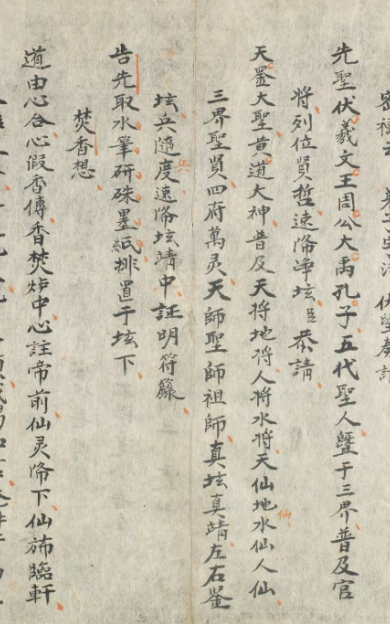 先聖伏羲文王周公大禹孔子五代聖人曁于三界普及官
将列位賢哲速降净坛臣恭請
天罡大聖首道大神普及天将地将人将水将天仙地水仙人仙
仙
三界聖賢四府萬灵天師聖師祖師真坛真靖左右鉴
坛兵隨度速降坛靖中証明符籙
告先取水筆研硃墨紙排置于坛下
焚香想
道由心合心假香傳香焚炉中心註帝前仙灵降下仙斾臨軒